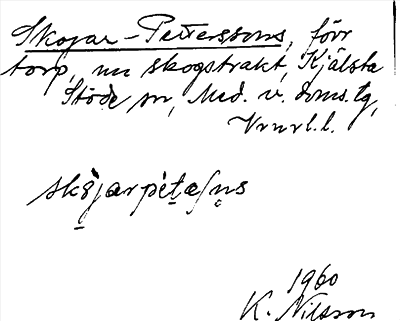 Skojar-Petterssons, förr
torp, nu skogstrakt, Kjälsta
Stöde sn, Med. v. doms.tg,
sko̤jarpèta/n̥s
1960
K. Nilsson